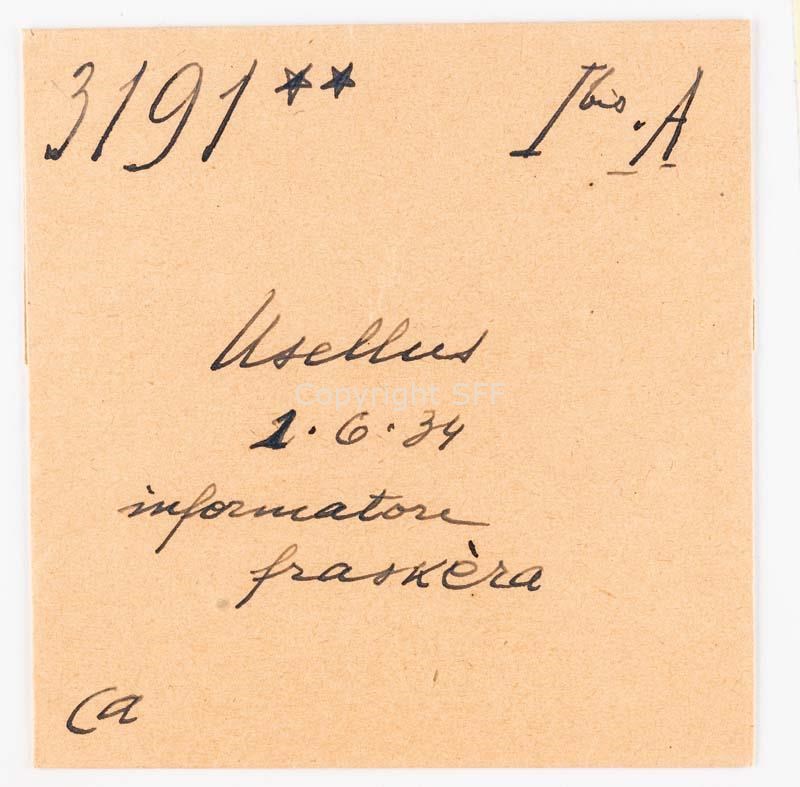 3191** I bis. A
Usellus
Copyright SFF
1.6.34
informatore
fraskèra
ca